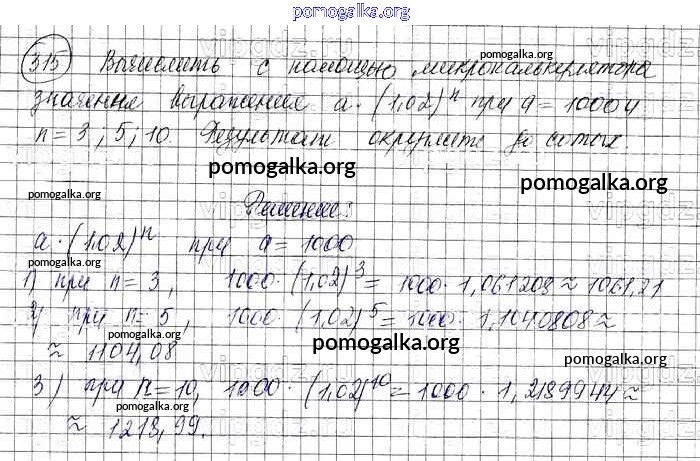 pomogalka.org
315 Вычислить с помощью микрокалькулятора
значения выражения a·(1,02)ⁿ при a=1000 и
n=3; 5; 10. Результат округлите до сотых.
pomogalka.org
pomogalka.org
pomogalka.org
pomogalka.org
Решение:
a·(1,02)ⁿ при a=1000
pomogalka.org
pomogalka.org
1) при n=3, 1000·(1,02)³=1000·1,061208≈1061,21
2) при n=5, 1000·(1,02)⁵=1000·1,1040808≈
pomogalka.org
pomogalka.org
≈1104,08
pomogalka.org
3) при n=10, 1000·(1,02)¹⁰=1000·1,2189944≈
pomogalka.org
pomogalka.org
≈1218,99.
pomogalka.org